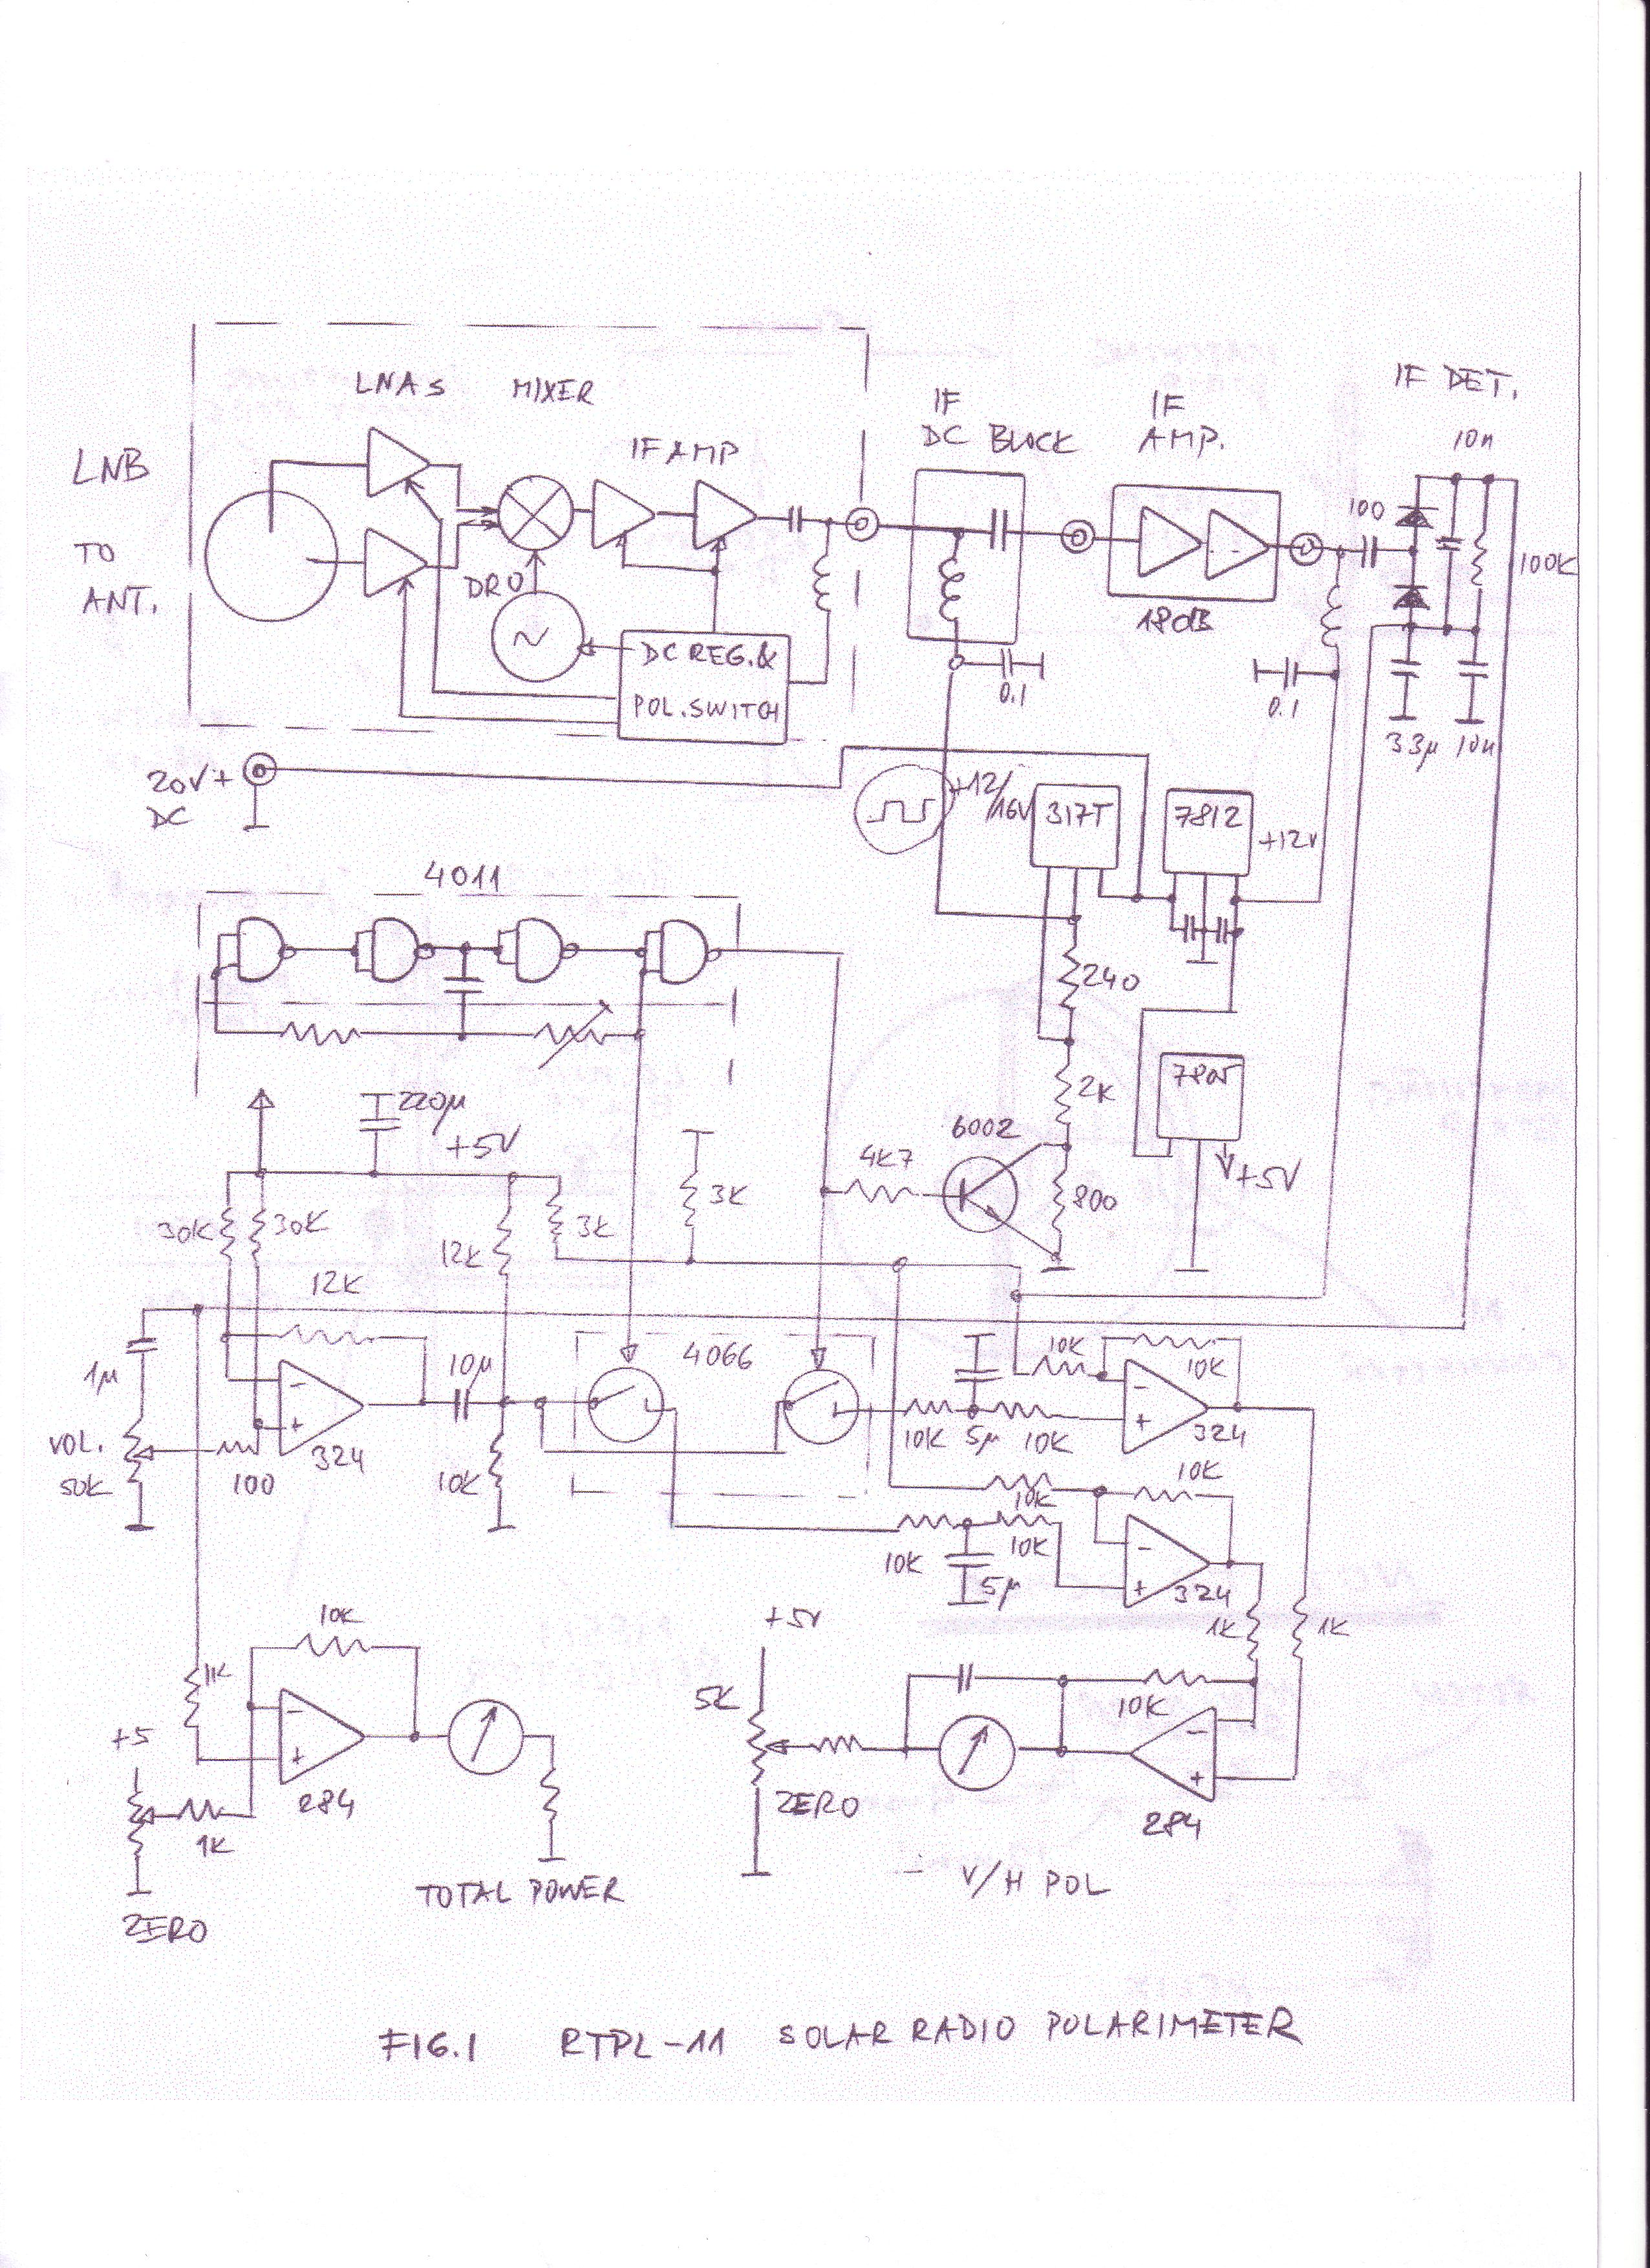 LNAs MIXER
IF DET.
LNB
TO
ANT.
IF AMP
IF
DC BLOCK
IF
AMP.
10n
100
100K
DRO
18dB
DC REG. &
POL. SWITCH
0.1
0.1
33µ 10n
20V+
DC
+12/
16V
317T
7812
+12V
4011
240
2K
7805
+5V
220µ
+5V
6002
4K7
800
30K
30K
12K
3K
3K
12K
1µ
10µ
4066
10K
10K
VOL.
50K
100
324
10K
10K
5µ
10K
324
10K
10K
10K
10K
5µ
324
1K
1K
+5V
5K
10K
ZERO
284
10K
1K
+5
1K
284
ZERO
TOTAL POWER
V/H POL
FIG.1 RTPL-11 SOLAR RADIO POLARIMETER